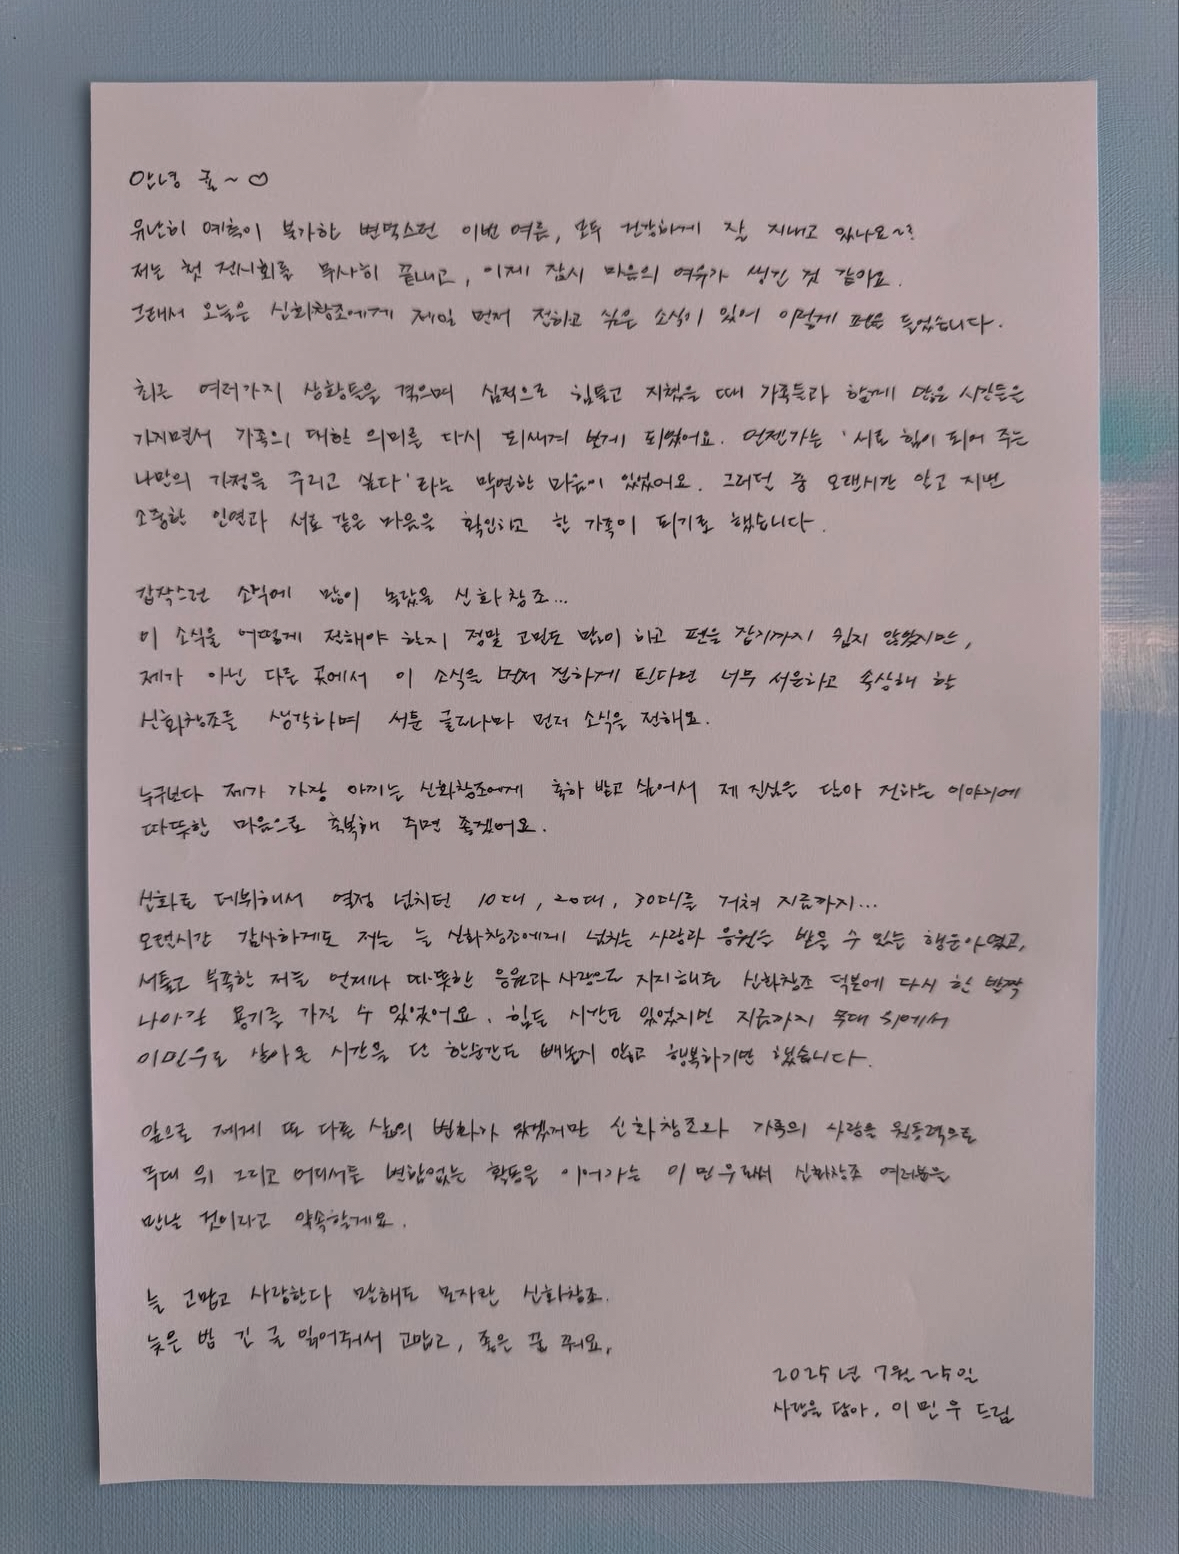 안녕 귤~♡
유난히 예측이 불가한 변덕스런 이번 여름, 모두 건강하게 잘 지내고 있나요~?
저는 첫 전시회를 무사히 끝내고, 이제 잠시 마음의 여유가 생긴 것 같아요.
그래서 오늘은 신화창조에게 제일 먼저 전하고 싶은 소식이 있어 이렇게 펜을 들었습니다.
최근 여러가지 상황들을 겪으며 심적으로 힘들고 지쳤을 때 가족들과 함께 많은 시간들은
가지면서 가족의 대한 의미를 다시 되새겨 보게 되었어요. 언젠가는 '서로 힘이 되어 주는
나만의 가정을 꾸리고 싶다'라는 막연한 마음이 있었어요. 그러던 중 오랜시간 알고 지낸
소중한 인연과 서로 같은 마음을 확인하고 한 가족이 되기로 했습니다.
갑작스런 소식에 많이 놀랐을 신화창조...
이 소식을 어떻게 전해야 할지 정말 고민도 많이 하고 펜을 잡기까지 쉽지 않았지만,
제가 아닌 다른 곳에서 이 소식을 먼저 접하게 된다면 너무 서운하고 속상해 할
신화창조를 생각하며 서툰 글로나마 먼저 소식을 전해요.
누구보다 제가 가장 아끼는 신화창조에게 축하 받고 싶어서 제 진심을 담아 전하는 이야기에
따뜻한 마음으로 축복해 주면 좋겠어요.
신화로 데뷔해서 열정 넘치던 10대, 20대, 30대를 거쳐 지금까지...
오랜시간 감사하게도 저는 늘 신화창조에게 넘치는 사랑과 응원을 받을 수 있는 행운아였고,
서툴고 부족한 저를 언제나 따뜻한 응원과 사랑으로 지지해준 신화창조 덕분에 다시 한 발짝
나아갈 용기를 가질 수 있었어요. 힘든 시간도 있었지만 지금까지 무대 위에서
이민우로 살아온 시간을 단 한순간도 빼놓지 않고 행복하기만 했습니다.
앞으로 제게 또 다른 삶의 변화가 있겠지만 신화창조와 가족의 사랑을 원동력으로
무대 위 그리고 어디서든 변함없는 활동을 이어가는 이민우로써 신화창조 여러분을
만날 것이라고 약속할게요.
늘 고맙고 사랑한다 말해도 모자란 신화창조.
늦은 밤 긴 글 읽어줘서 고맙고, 좋은 꿈 꿔요.
2025년 7월 25일
사랑을 담아, 이민우 드림